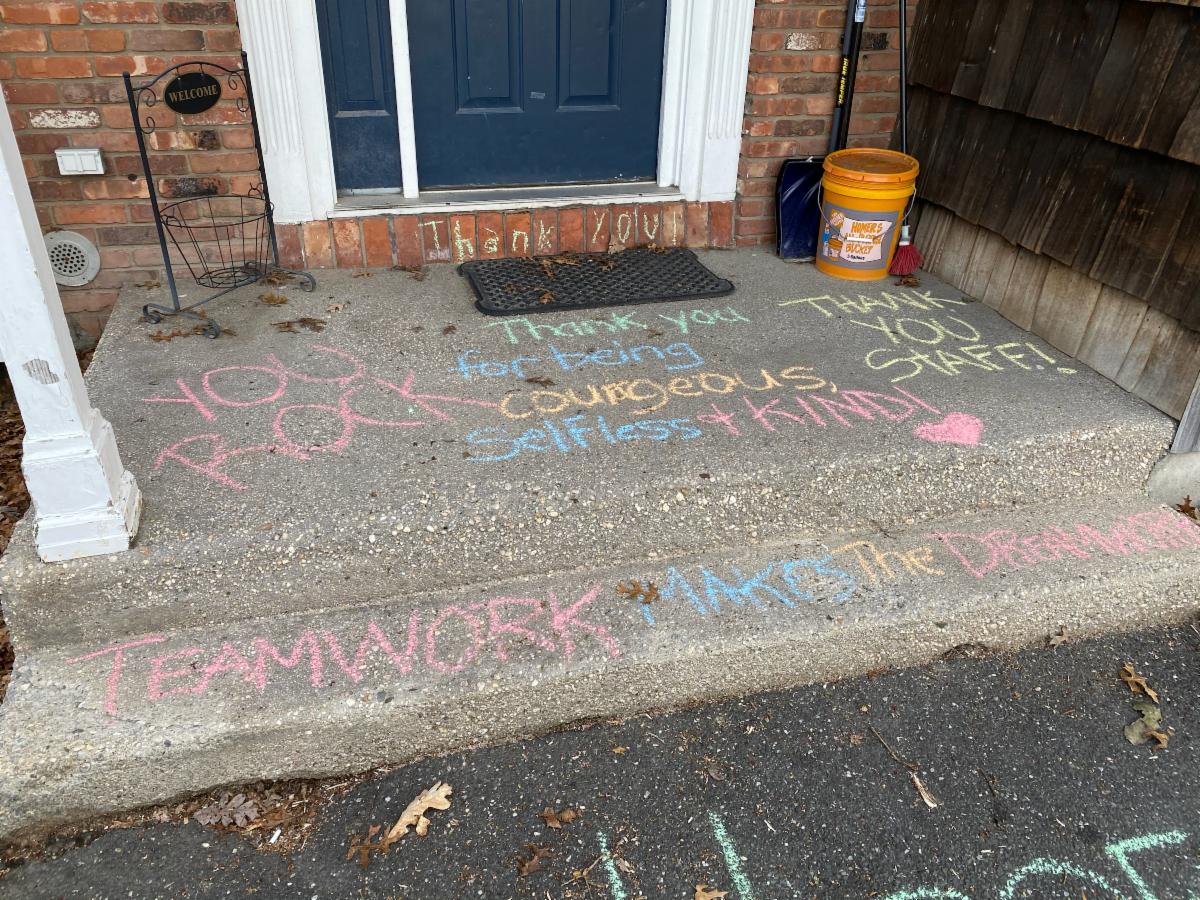 WELCOME
Thank you!
HOMER'S
BUCKET
Thank you
for being
courageous,
selfless + KIND!
THANK
YOU
STAFF!
YOU
ROCK
TEAMWORK MAKES The DREAMWORK